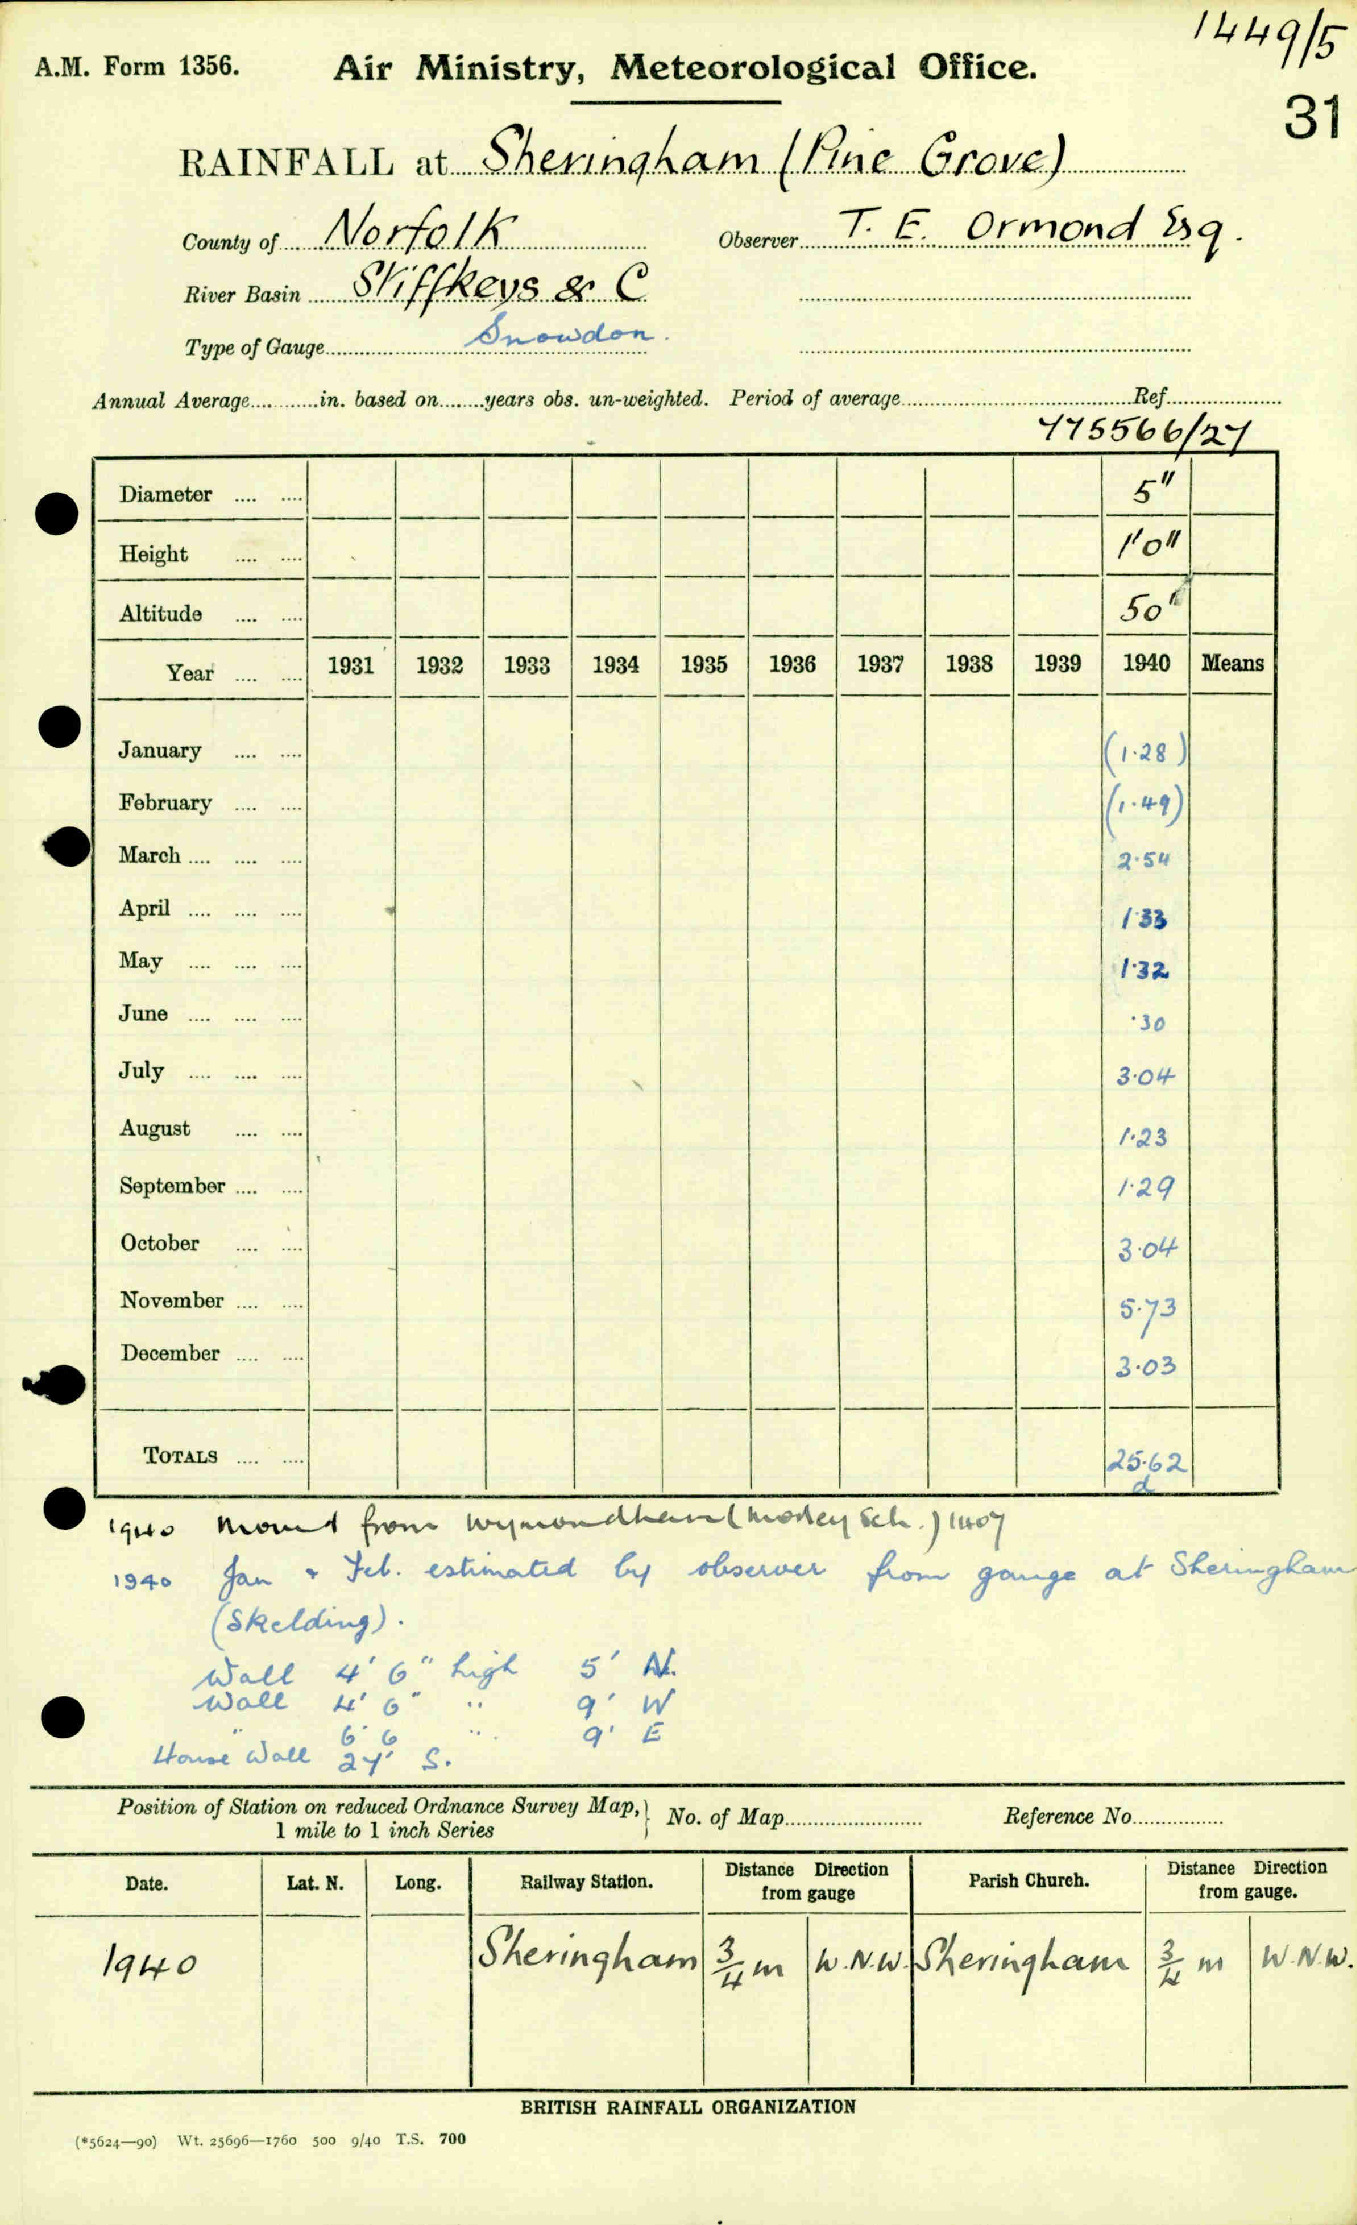 1449/5
A.M. Form 1356. Air Ministry, Meteorological Office.
31
RAINFALL at Sheringham (Pine Grove)
County of Norfolk Observer T. E. Ormond Esq.
River Basin Stiffkeys & C
Type of Gauge Snowdon.
Annual Average in. based on years obs. un-weighted. Period of average Ref
775566/27
Diameter 5"
Height 1'0"
Altitude 50'
Year 1931 1932 1933 1934 1935 1936 1937 1938 1939 1940 Means
January (1.28)
February (1.49)
March 2.54
April 1.33
May 1.32
June .30
July 3.04
August 1.23
September 1.29
October 3.04
November 5.73
December 3.03
TOTALS 25.62
d
1940 Moved from Wymondham (Morley Sch.) 1407
1940 Jan & Feb. estimated by observer from gauge at Sheringham
(Skelding).
Wall 4' 6" high 5' N.
Wall 4' 6" " 9' W
" 6' 6 " 9' E
House Wall 27' S.
Position of Station on reduced Ordnance Survey Map, 1 mile to 1 inch Series } No. of Map Reference No
Date. Lat. N. Long. Railway Station. Distance Direction from gauge Parish Church. Distance Direction from gauge.
1940 Sheringham 3/4 m W.N.W. Sheringham 3/4 m W.N.W.
BRITISH RAINFALL ORGANIZATION
(*5624—90) Wt. 25696—1760 500 9/40 T.S. 700